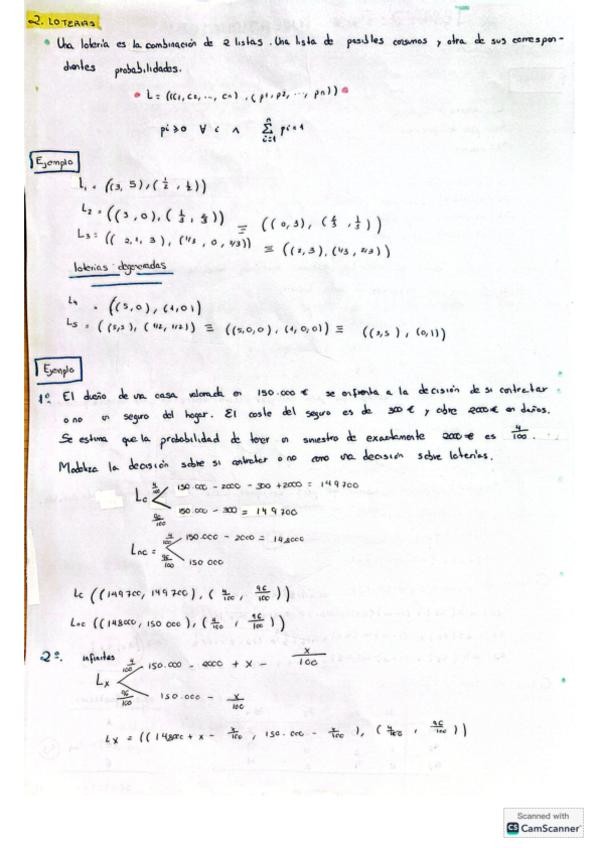 2. LOTERIAS
Una lotería es la combinación de 2 listas. Una lista de posibles consumos y otra de sus correspon-
dientes probabilidades.
L = ((c1, c2, ..., cn), (p1, p2, ..., pn))
pi ≥ 0 ∀ i ∧ n Σ i=1 pi = 1
Ejemplo
L1 = ((3, 5), (1/2, 1/2))
L2 = ((3, 0), (1/3, 2/3)) ≡ ((0, 3), (2/3, 1/3))
L3 = ((2, 1, 3), (1/3, 0, 2/3)) ≡ ((2, 3), (1/3, 2/3))
loterias degeneradas
L4 = ((5, 0), (1, 0))
L5 = ((5,5), (1/2, 1/2)) ≡ ((5,0,0), (1,0,0)) ≡ ((3,5), (0,1))
Ejemplo
1º. El dueño de una casa valorada en 150.000 € se enfrenta a la decisión de si contratar
o no un seguro del hogar. El coste del seguro es de 300 € y cubre 2000 € en daños.
Se estima que la probabilidad de tener un siniestro de exactamente 2000 € es 4/100.
Modeliza la decisión sobre si contratar o no como una decisión sobre loterías.
Lc 4/100 150.000 - 2000 - 300 + 2000 = 149700
96/100 150.000 - 300 = 149700
Lnc = 4/100 150.000 - 2000 = 148000
96/100 150 000
Lc ((149700, 149700), (4/100, 96/100))
Lnc ((148000, 150 000), (4/100, 96/100))
2º. infinitas
Lx 4/100 150.000 - 2000 + x - x/100
96/100 150.000 - x/100
Lx = ((148000 + x - x/100, 150.000 - x/100), (4/100, 96/100))
Scanned with
CS CamScanner